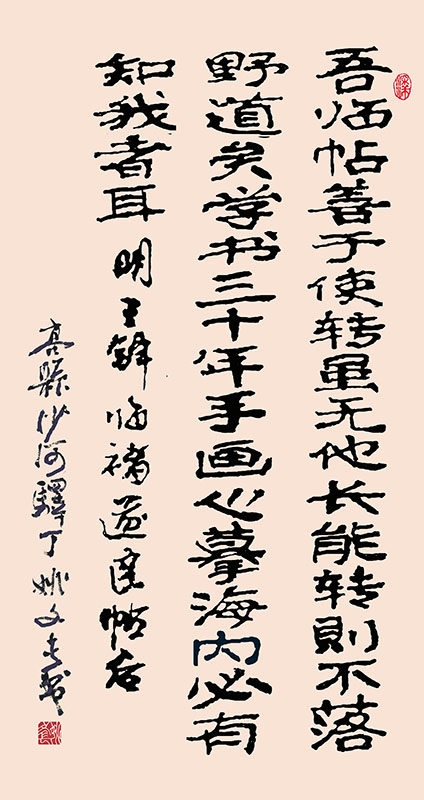 吾临帖善于使转虽无他长能转則不落
野道矣学书三十年手画心摹海内必有
知我者耳 明王鐸临褚遂良帖后
高縣沙河驛丁姚文